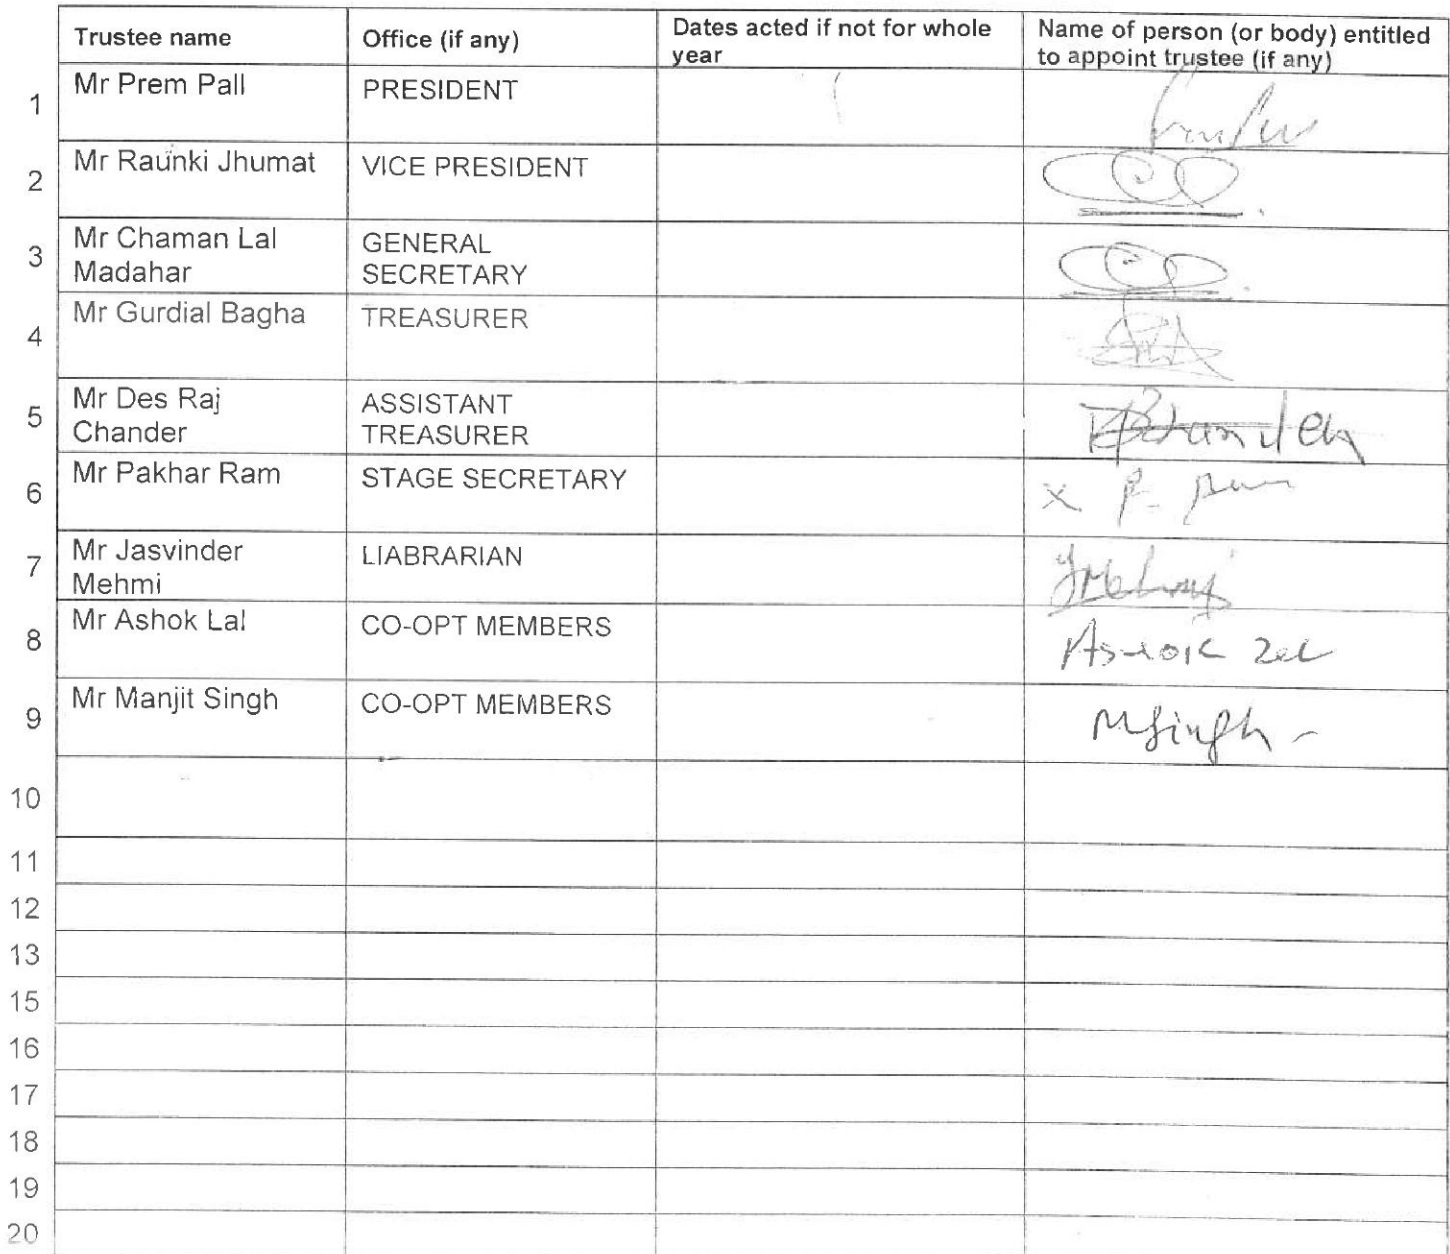 Trustee name Office (if any) Dates acted if not for whole year Name of person (or body) entitled to appoint trustee (if any)
1 Mr Prem Pall PRESIDENT
2 Mr Raunki Jhumat VICE PRESIDENT
3 Mr Chaman Lal Madahar GENERAL SECRETARY
4 Mr Gurdial Bagha TREASURER
5 Mr Des Raj Chander ASSISTANT TREASURER
6 Mr Pakhar Ram STAGE SECRETARY X
7 Mr Jasvinder Mehmi LIABRARIAN JMehmi
8 Mr Ashok Lal CO-OPT MEMBERS Ashok Lal
9 Mr Manjit Singh CO-OPT MEMBERS MSingh
10
11
12
13
15
16
17
18
19
20